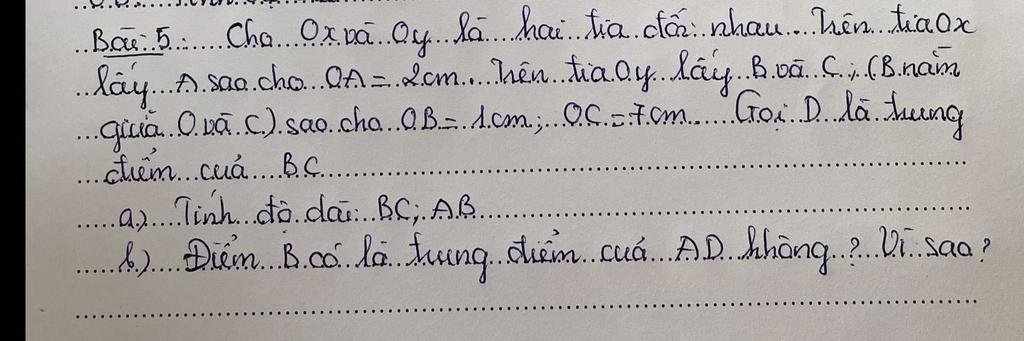 Bài 5: Cho Ox và Oy là hai tia đối nhau. Trên tia Ox
lấy A sao cho OA = 2cm. Trên tia Oy lấy B và C; (B nằm
giữa O và C) sao cho OB = 1cm; OC = 7cm. Gọi D là trung
điểm của BC
a) Tính độ dài BC; AB
b) Điểm B có là trung điểm của AD không? Vì sao?